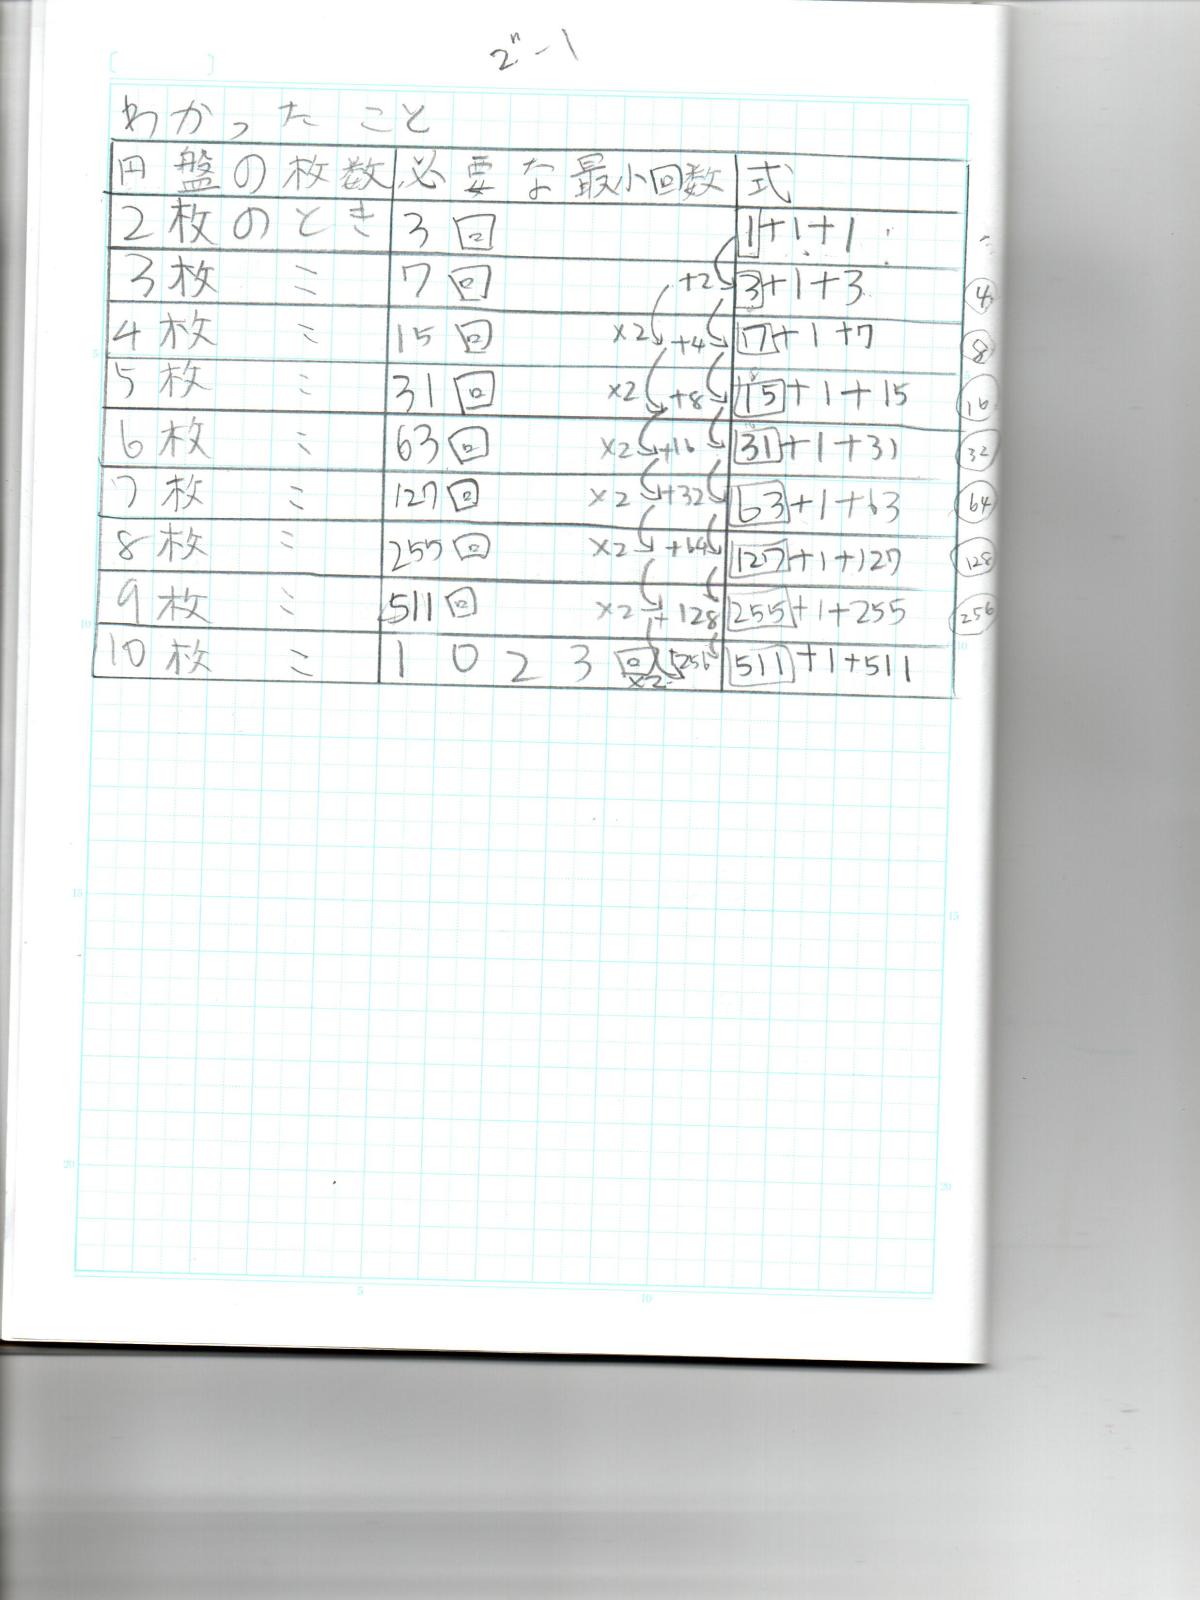 2ⁿ-1
わかったこと
円盤の枚数 必要な最小回数 式
2枚のとき 3回 1+1+1
3枚 〃 7回 +2 3+1+3 4
4枚 〃 15回 ×2 +4 7+1+7 8
5枚 〃 31回 ×2 +8 15+1+15 16
6枚 〃 63回 ×2 +16 31+1+31 32
7枚 〃 127回 ×2 +32 63+1+63 64
8枚 〃 255回 ×2 +64 127+1+127 128
9枚 〃 511回 ×2 +128 255+1+255 256
10枚 〃 1023回 ×2 256 511+1+511
5
10
10
15
15
20
20
5
10